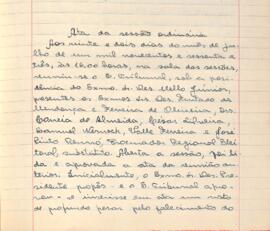 Ata da sessão ordinária
Aos vinte e dois dias do mês de ju-
lho de um mil novecentos e sessenta e
três, às 16,00 horas, na sala das sessões,
reuniu-se o E. Tribunal, sob a presi-
dência do Exmo. Sr. Des. Mello Júnior,
presentes os Exmos. Srs. Des. Furtado de
Mendonça e Ferreira de Oliveira, Drs.
Corrêa de Almeida, César Silveira,
Valle Ferreira e José
Pinto Renó, Procurador Regional Elei-
toral, substituto. Aberta a sessão, foi li-
da e aprovada a ata da reunião an-
terior. Inicialmente, o Exmo. Sr. Des. Pre-
sidente propôs - e o E. Tribunal apro-
vou - se inserisse em ata um voto
de profundo pesar pelo falecimento do